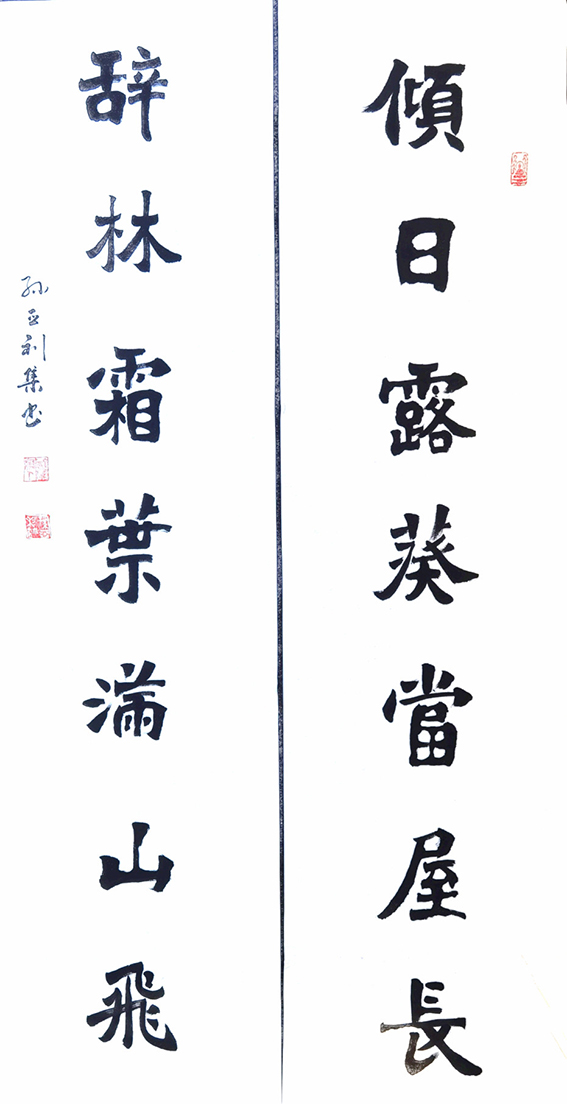 傾日露葵當屋長
辞林霜葉滿山飛
孙亚利集书